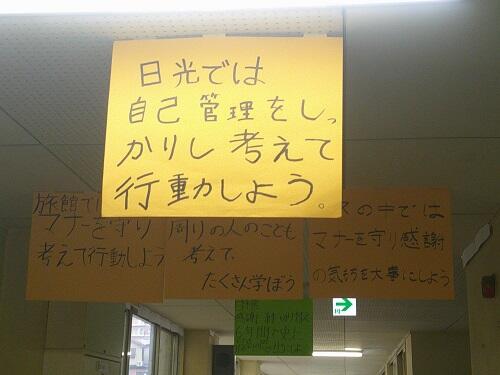 日光では
自己管理をしっ
かりし考えて
行動しよう。
旅館で
マナーを守り
考えて行動しよう
周りの人のことも
考えて、
たくさん学ぼう
スの中では
マナーを守り感謝
の気持ちを大事にしよう